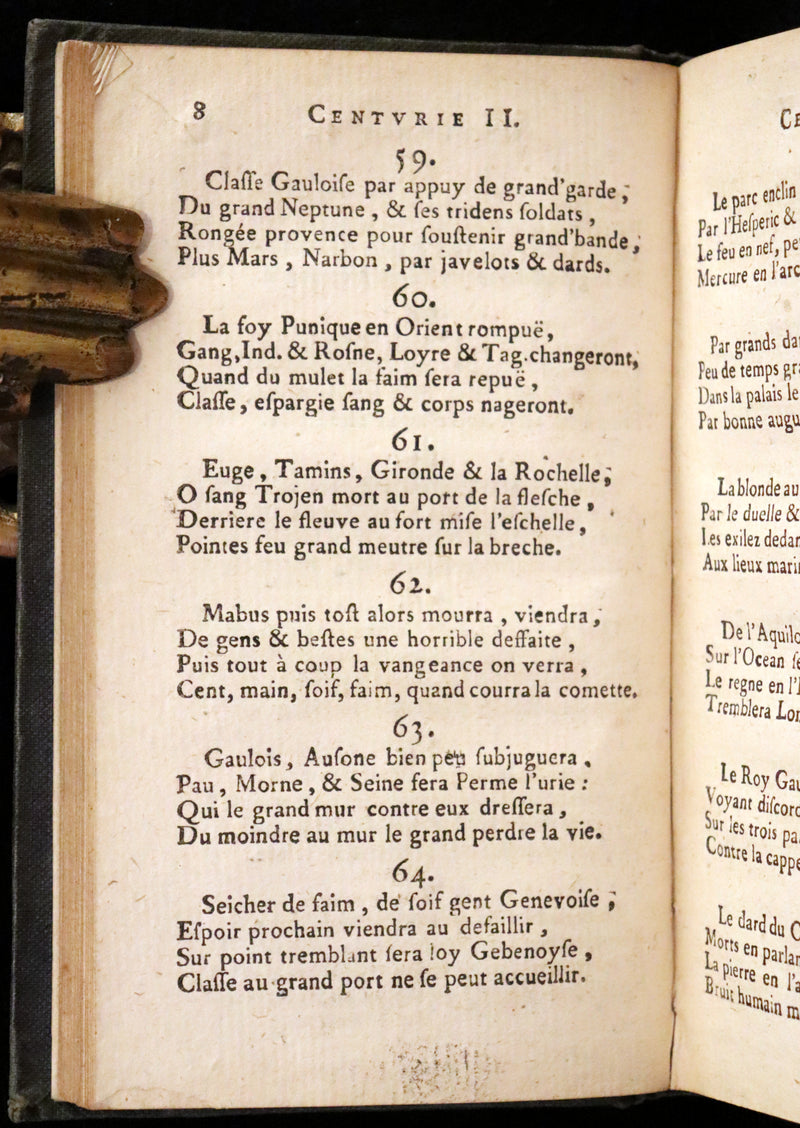 8 CENTVRIE II.
59.
Claſſe Gauloiſe par appuy de grand'garde,
Du grand Neptune, & ſes tridens ſoldats,
Rongée provence pour ſouſtenir grand'bande,
Plus Mars, Narbon, par javelots & dards.
60.
La foy Punique en Orient rompuë,
Gang, Ind. & Roſne, Loyre & Tag. changeront,
Quand du mulet la faim ſera repuë,
Claſſe, eſpargie ſang & corps nageront.
61.
Euge, Tamins, Gironde & la Rochelle,
O ſang Trojen mort au port de la fleſche,
Derriere le fleuve au fort miſe l'eſchelle,
Pointes feu grand meutre ſur la breche.
62.
Mabus puis toſt alors mourra, viendra,
De gens & beſtes une horrible deffaite,
Puis tout à coup la vangeance on verra,
Cent, main, ſoif, faim, quand courra la comette.
63.
Gaulois, Auſone bien peu ſubjuguera,
Pau, Morne, & Seine fera Perme l'urie:
Qui le grand mur contre eux dreſſera,
Du moindre au mur le grand perdre la vie.
64.
Seicher de faim, de ſoif gent Genevoiſe,
Eſpoir prochain viendra au defaillir,
Sur point tremblant ſera loy Gebenoyſe,
Claſſe au grand port ne ſe peut accueillir.
Le parc enclin
Par l'Heſperic &
Le feu en nef,
Mercure en l'arc
Par grands
Peu de temps
Dans la palais le
Par bonne
La blonde au
Par le duelle &
Les exilez
Aux lieux
De l'
Sur l'Ocean
Le regne en
Tremblera
Le Roy
Voyant
Sur les trois
Contre la
Le dard du
Morts en
La pierre en
Bruit humain